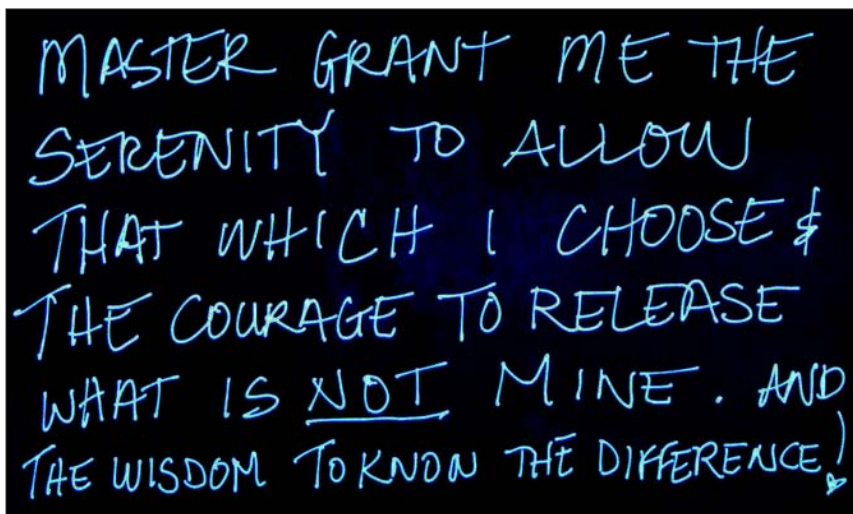 MASTER GRANT ME THE
SERENITY TO ALLOW
THAT WHICH I CHOOSE &
THE COURAGE TO RELEASE
WHAT IS NOT MINE. AND
THE WISDOM TO KNOW THE DIFFERENCE!